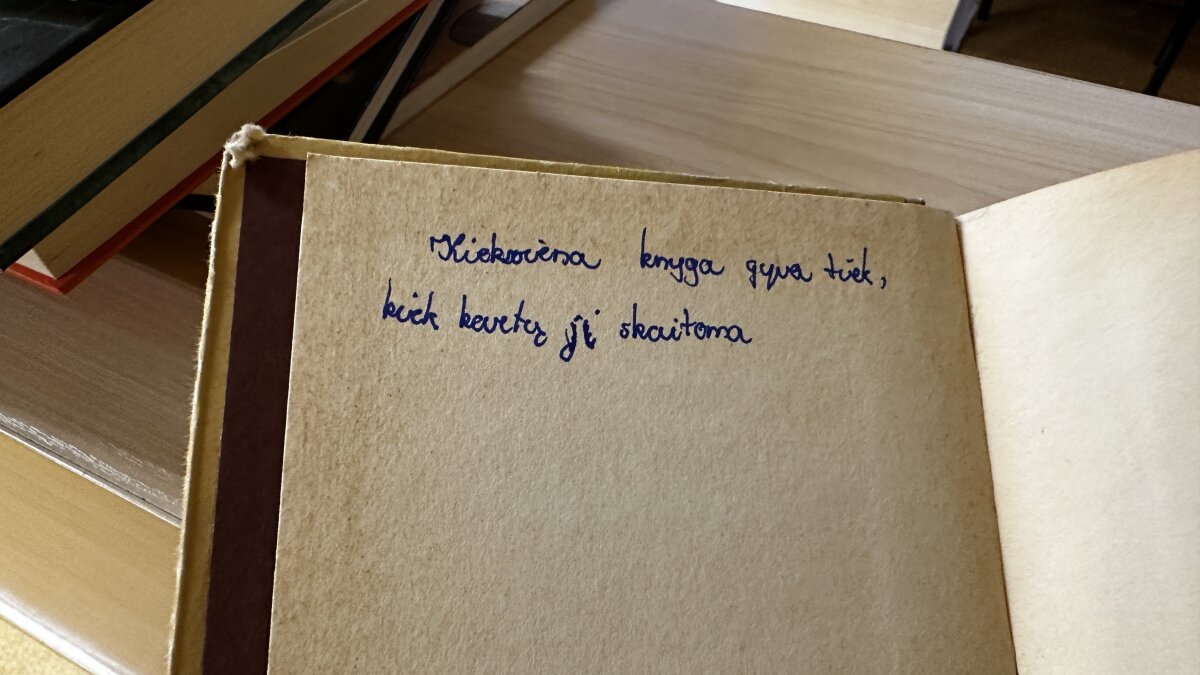 Kiekviena knyga gyva tiek,
kiek kartų ji skaitoma